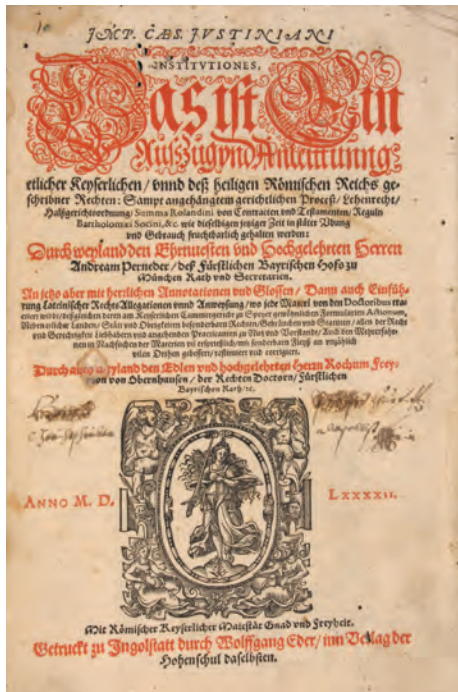 IMP. CÆS. JVSTINIANI
INSTITVTIONES,
Das ist Ein
Außzug vnd Anleittung
etlicher Keyserlichen / vnnd deß heiligen Römischen Reichs ge-
schribner Rechten: Sampt angehängtem gerichtlichen Proceß / Lehenrecht /
Halßgerichtsordnung / Summa Rolandini von Contracten vnd Testamenten / Reguln
Bartholomæi Socini, &c. wie dieselbigen jeniger Zeit in stäter Vbung
vnd Gebrauch fruchtbarlich gehalten werden:
Durch weyland den Ehrnuesten vnd Hochgelehrten Herren
Andream Perneder / deß Fürstlichen Bayrischen Hofs zu
München Rath vnd Secretarien.
An jetzo aber mit herrlichen Annotationen vnd Glossen / Dann auch Einfüh-
rung Lateinischer Rechts Allegationen vnnd Anweysung / wo jede Materi von den Doctoribus tra-
ctiert wirdt / deßgleichen deren am Keyserlichen Cammergericht zu Speyr gewöhnlichen Formularien Actionum,
Neben etlicher Landen / Stätt vnd Obrigkeiten besonderbaren Rechten / Gebräuchen vnd Statuten / allen der Recht
vnd Gerechtigkeit Liebhabern vnd angehenden Practicanten zu Nutz vnd Vorstandt / Auch den Mehrerfahr-
nen in Nachsuchen der Materien vil ersprießlich / mit sonderbarem Fleyß an vnzählich
vilen Orthen gebessert / restituiert vnd corrigiert.
Durch auch weyland den Edlen vnd hochgelehrten Herrn Rochum Frey-
mon von Obernhausen / der Rechten Doctorn / Fürstlichen
Bayrischen Rath / ec.
ANNO M. D. LXXXXII.
Mit Römischer Keyserlicher Maiestät Gnad vnd Freyheit.
Getruckt zu Ingolstatt durch Wolffgang Eder / inn Verlag der
Hohenschul daselbsten.